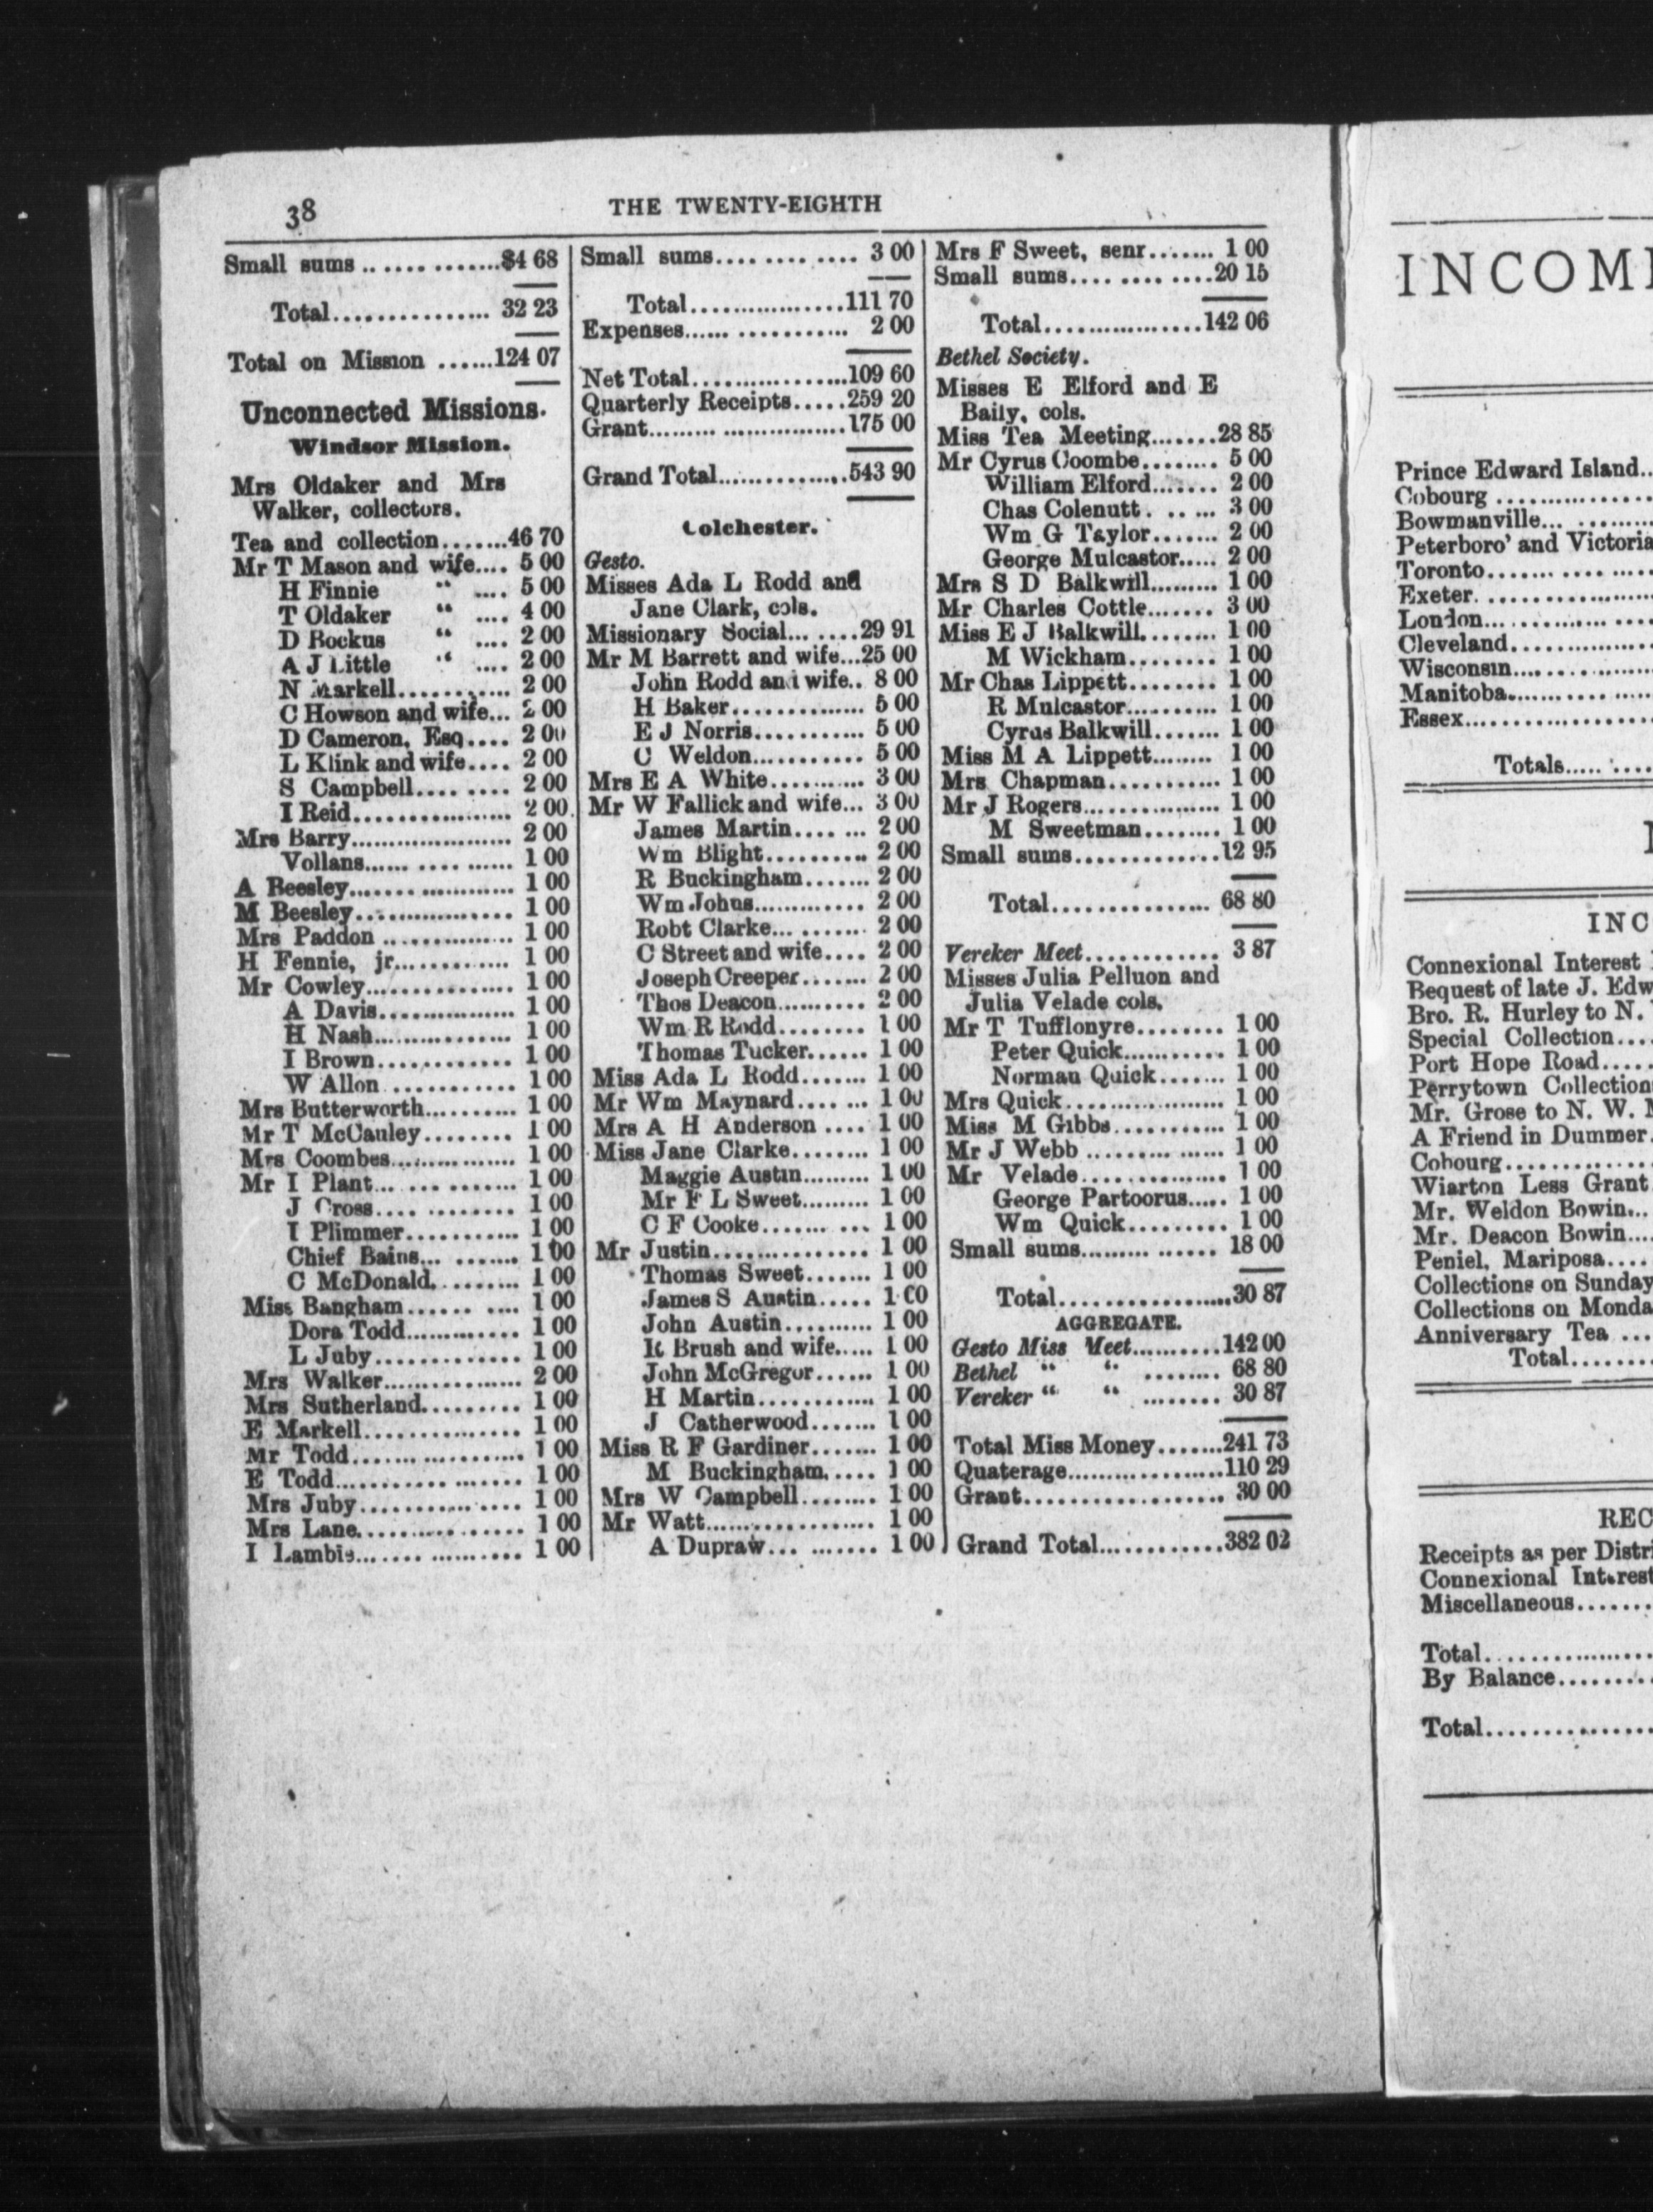 38
THE TWENTY-EIGHTH
Small sums .. .............$4 68
Total............... 32 23
Total on Mission ......124 07
Unconnected Missions.
Windsor Mission.
Mrs Oldaker and Mrs
Walker, collectors.
Tea and collection.......46 70
Mr T Mason and wife.... 5 00
H Finnie " .... 5 00
T Oldaker " .... 4 00
D Bockus " .... 2 00
A J Little " .... 2 00
N Markell............ 2 00
C Howson and wife... 2 00
D Cameron, Esq.... 2 00
L Klink and wife.... 2 00
S Campbell.... .... 2 00
I Reid................ 2 00
Mrs Barry..................... 2 00
Vollans...... .... ...... 1 00
A Beesley....... ............ 1 00
M Beesley................. 1 00
Mrs Paddon ............... 1 00
H Fennie, jr............. 1 00
Mr Cowley................ 1 00
A Davis................ 1 00
H Nash................ 1 00
I Brown............. 1 00
W Allon ............ 1 00
Mrs Butterworth.......... 1 00
Mr T McCauley........ 1 00
Mrs Coombes............... 1 00
Mr I Plant... ... ........ 1 00
J Cross.... ......... 1 00
I Plimmer........... 1 00
Chief Bains... ....... 1 00
C McDonald......... 1 00
Miss Bangham...... .... 1 00
Dora Todd............ 1 00
L Juby............. 1 00
Mrs Walker................ 2 00
Mrs Sutherland.......... 1 00
E Markell............... 1 00
Mr Todd....... ............ 1 00
E Todd............ ....... 1 00
Mrs Juby................. 1 00
Mrs Lane................. 1 00
I Lambie....... .......... 1 00
Small sums.... .... .... 3 00
Total................111 70
Expenses...... ........... 2 00
Net Total................109 60
Quarterly Receipts.....259 20
Grant......... ................175 00
Grand Total...............543 90
Colchester.
Gesto.
Misses Ada L Rodd and
Jane Clark, cols.
Missionary Social... ....29 91
Mr M Barrett and wife...25 00
John Rodd and wife.. 8 00
H Baker.............. 5 00
E J Norris........... 5 00
C Weldon........... 5 00
Mrs E A White.......... 3 00
Mr W Fallick and wife... 3 00
James Martin.... ... 2 00
Wm Blight.......... 2 00
R Buckingham....... 2 00
Wm Johns............. 2 00
Robt Clarke... ....... 2 00
C Street and wife.... 2 00
Joseph Creeper....... 2 00
Thos Deacon.......... 2 00
Wm R Rodd........ 1 00
Thomas Tucker...... 1 00
Miss Ada L Rodd....... 1 00
Mr Wm Maynard.... ... 1 00
Mrs A H Anderson .... 1 00
Miss Jane Clarke........ 1 00
Maggie Austin.......... 1 00
Mr F L Sweet.......... 1 00
C F Cooke....... ... 1 00
Mr Justin................ 1 00
Thomas Sweet....... 1 00
James S Austin..... 1 00
John Austin.......... 1 00
R Brush and wife..... 1 00
John McGregor...... 1 00
H Martin............ 1 00
J Catherwood....... 1 00
Miss R F Gardiner....... 1 00
M Buckingham..... 1 00
Mrs W Campbell........ 1 00
Mr Watt.................. 1 00
A Dupraw... ....... 1 00
Mrs F Sweet, senr....... 1 00
Small sums.... .... ....20 15
Total................142 06
Bethel Society.
Misses E Elford and E
Baily, cols.
Miss Tea Meeting.......28 85
Mr Cyrus Coombe........ 5 00
William Elford....... 2 00
Chas Colenutt. .. ... 3 00
Wm G Taylor....... 2 00
George Mulcastor..... 2 00
Mrs S D Balkwill......... 1 00
Mr Charles Cottle....... 3 00
Miss E J Balkwill........ 1 00
M Wickham........ 1 00
Mr Chas Lippett........ 1 00
R Mulcastor.......... 1 00
Cyrus Balkwill....... 1 00
Miss M A Lippett......... 1 00
Mrs Chapman........... 1 00
Mr J Rogers............... 1 00
M Sweetman........ 1 00
Small sums..............12 95
Total............... 68 80
Vereker Meet............. 3 87
Misses Julia Pelluon and
Julia Velade cols.
Mr T Tufflonyre........ 1 00
Peter Quick........... 1 00
Norman Quick....... 1 00
Mrs Quick.................. 1 00
Miss M Gibbs........... 1 00
Mr J Webb ......... ...... 1 00
Mr Velade............... 1 00
George Partoorus..... 1 00
Wm Quick......... 1 00
Small sums......... ...... 18 00
Total.................30 87
AGGREGATE.
Gesto Miss Meet..........142 00
Bethel " " ........ 68 80
Vereker " " ........ 30 87
Total Miss Money.......241 73
Quaterage..................110 29
Grant.................. 30 00
Grand Total.............382 02
INCOM
Prince Edward Island..
Cobourg ..............
Bowmanville... ........
Peterboro' and Victoria
Toronto....... .... .....
Exeter. .................
London... ........... ....
Cleveland..............
Wisconsin..............
Manitoba..............
Essex..................
Totals..... ....
INC
Connexional Interest
Bequest of late J. Edw
Bro. R. Hurley to N.
Special Collection....
Port Hope Road.....
Perrytown Collection
Mr. Grose to N. W.
A Friend in Dummer.
Cobourg..............
Wiarton Less Grant
Mr. Weldon Bowin...
Mr. Deacon Bowin....
Peniel, Mariposa....
Collections on Sunday
Collections on Monda
Anniversary Tea ...
Total........
REC
Receipts as per Distri
Connexional Interest
Miscellaneous.......
Total................
By Balance.........
Total................